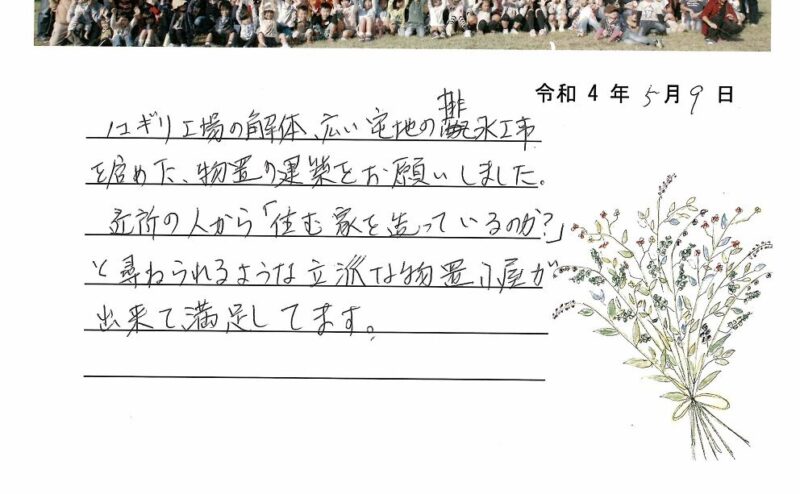 令和 4 年 5月 9 日
ノコギリ工場の解体、広い宅地の排水工事
を含めた、物置の建築をお願いしました。
近所の人から「住む家を造っているのか?」
と尋ねられるような立派な物置小屋が
出来て、満足してます。